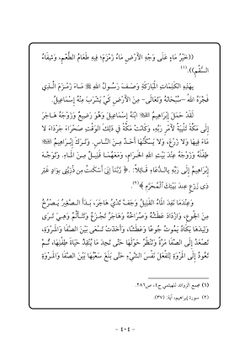 ((خَيْرُ مَاءٍ عَلَى وَجْهِ الأَرْضِ مَاءُ زَمْزَمَ؛ فِيهِ طَعَامُ الطُّعْمِ، وَشِفَاءُ
السُّقْمِ)).(١)
بِهَذِهِ الْكَلِمَاتِ الْمُبَارَكَةِ وَصَفَ رَسُولُ اللهِ ﷺ مَاءَ زَمْزَمَ الَّذِي
فَجَّرَهُ اللهُ –سُبْحَانَهُ وَتَعَالَى– مِنَ الأَرْضِ كَيْ يَشْرَبَ مِنْهُ إِسْمَاعِيلُ.
لَقَدْ حَمَلَ إِبْرَاهِيمُ ابْنَهُ إِسْمَاعِيلَ وَهُوَ رَضِيعٌ وَزَوْجَهُ هَاجَرَ
إِلَى مَكَّةَ تَلْبِيَةً لأَمْرِ رَبِّهِ، وَكَانَتْ مَكَّةُ فِي ذَلِكَ الْوَقْتِ صَحْرَاءَ جَرْدَاءَ لاَ
مَاءَ فِيهَا وَلاَ زَرْعَ، وَلاَ يَسْكُنُهَا أَحَدٌ مِنَ النَّاسِ. وَتَرَكَ إِبْرَاهِيمُ
طِفْلَهُ وَزَوْجَهُ عِنْدَ بَيْتِ اللهِ الْحَرَامِ، وَمَعَهُمَا قَلِيلٌ مِنَ الْمَاءِ. وَتَوَجَّهَ
إِبْرَاهِيمُ إِلَى رَبِّهِ بِالدُّعَاءِ قَائِلاً: ﴿رَبَّنَا إِنِّي أَسْكَنْتُ مِن ذُرِّيَّتِي بِوَادٍ غَيْرِ
ذِي زَرْعٍ عِندَ بَيْتِكَ الْمُحَرَّمِ﴾(٢)
وَعِنْدَمَا نَفِدَ الْمَاءُ الْقَلِيلُ وَجَفَّ ثَدْيُ هَاجَرَ، بَدَأَ الصَّغِيرُ يَصْرُخُ
مِنَ الْجُوعِ، وَازْدَادَ عَطَشُهُ وَصُرَاخُهُ وَهَاجَرُ تَجْزَعُ وَتَتَأَلَّمُ وَهِيَ تَرَى
وَلِيدَهَا يَكَادُ يَمُوتُ جُوعًا وَعَطَشًا، وَأَخَذَتْ تَسْعَى بَيْنَ الصَّفَا وَالْمَرْوَةِ،
تَصْعَدُ إِلَى الصَّفَا مَرَّةً وَتَنْظُرُ حَوْلَهَا حَتَّى تَجِدَ مَا يُنْقِذُ حَيَاةَ طِفْلِهَا، ثُمَّ
تَعُودُ إِلَى الْمَرْوَةِ لِتَفْعَلَ نَفْسَ الشَّيْءِ حَتَّى بَلَغَ سَعْيُهَا بَيْنَ الصَّفَا وَالْمَرْوَةِ
(١) مجمع الزوائد للهيثمي ج٤، ص٢٨٦.
(٢) سورة إبراهيم، آية: (٣٧).